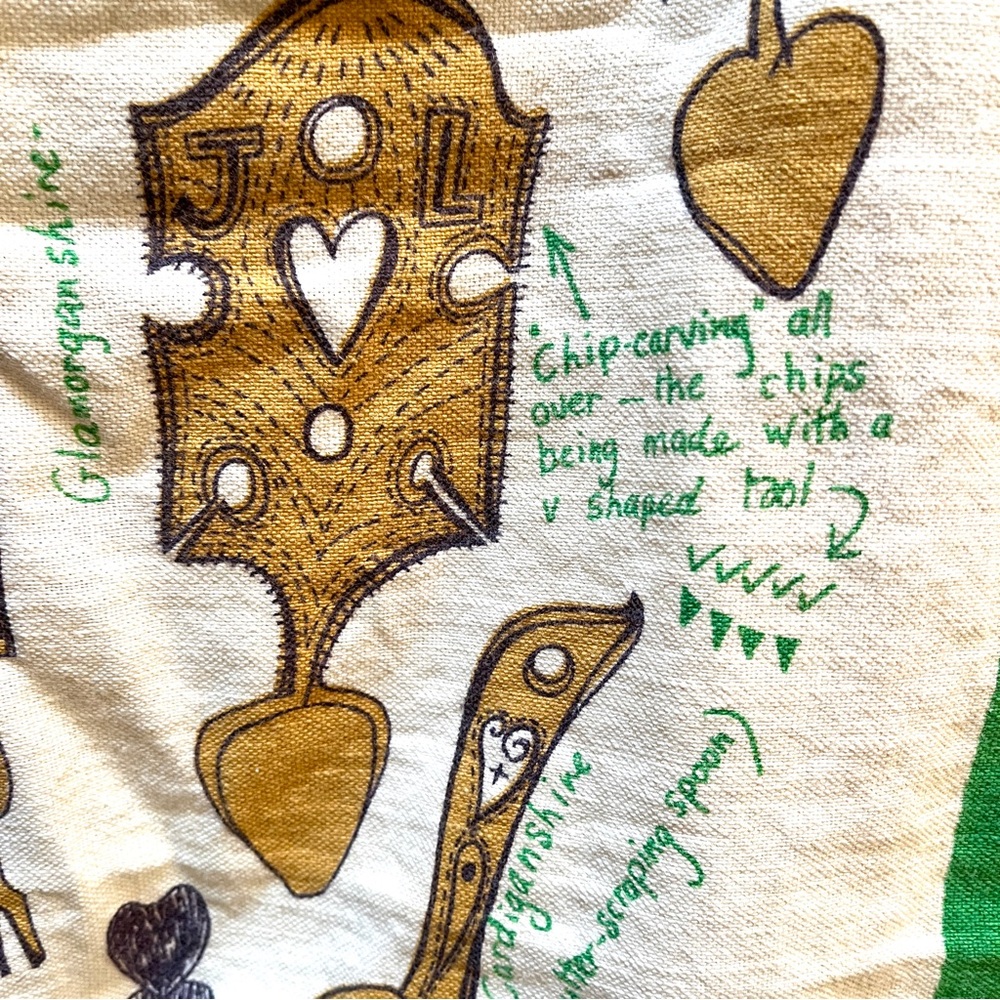 J L
Glamorganshire-
"Chip-carving" all
over - the chips
being made with a
v shaped tool
Cardiganshire
-scraping spoon)